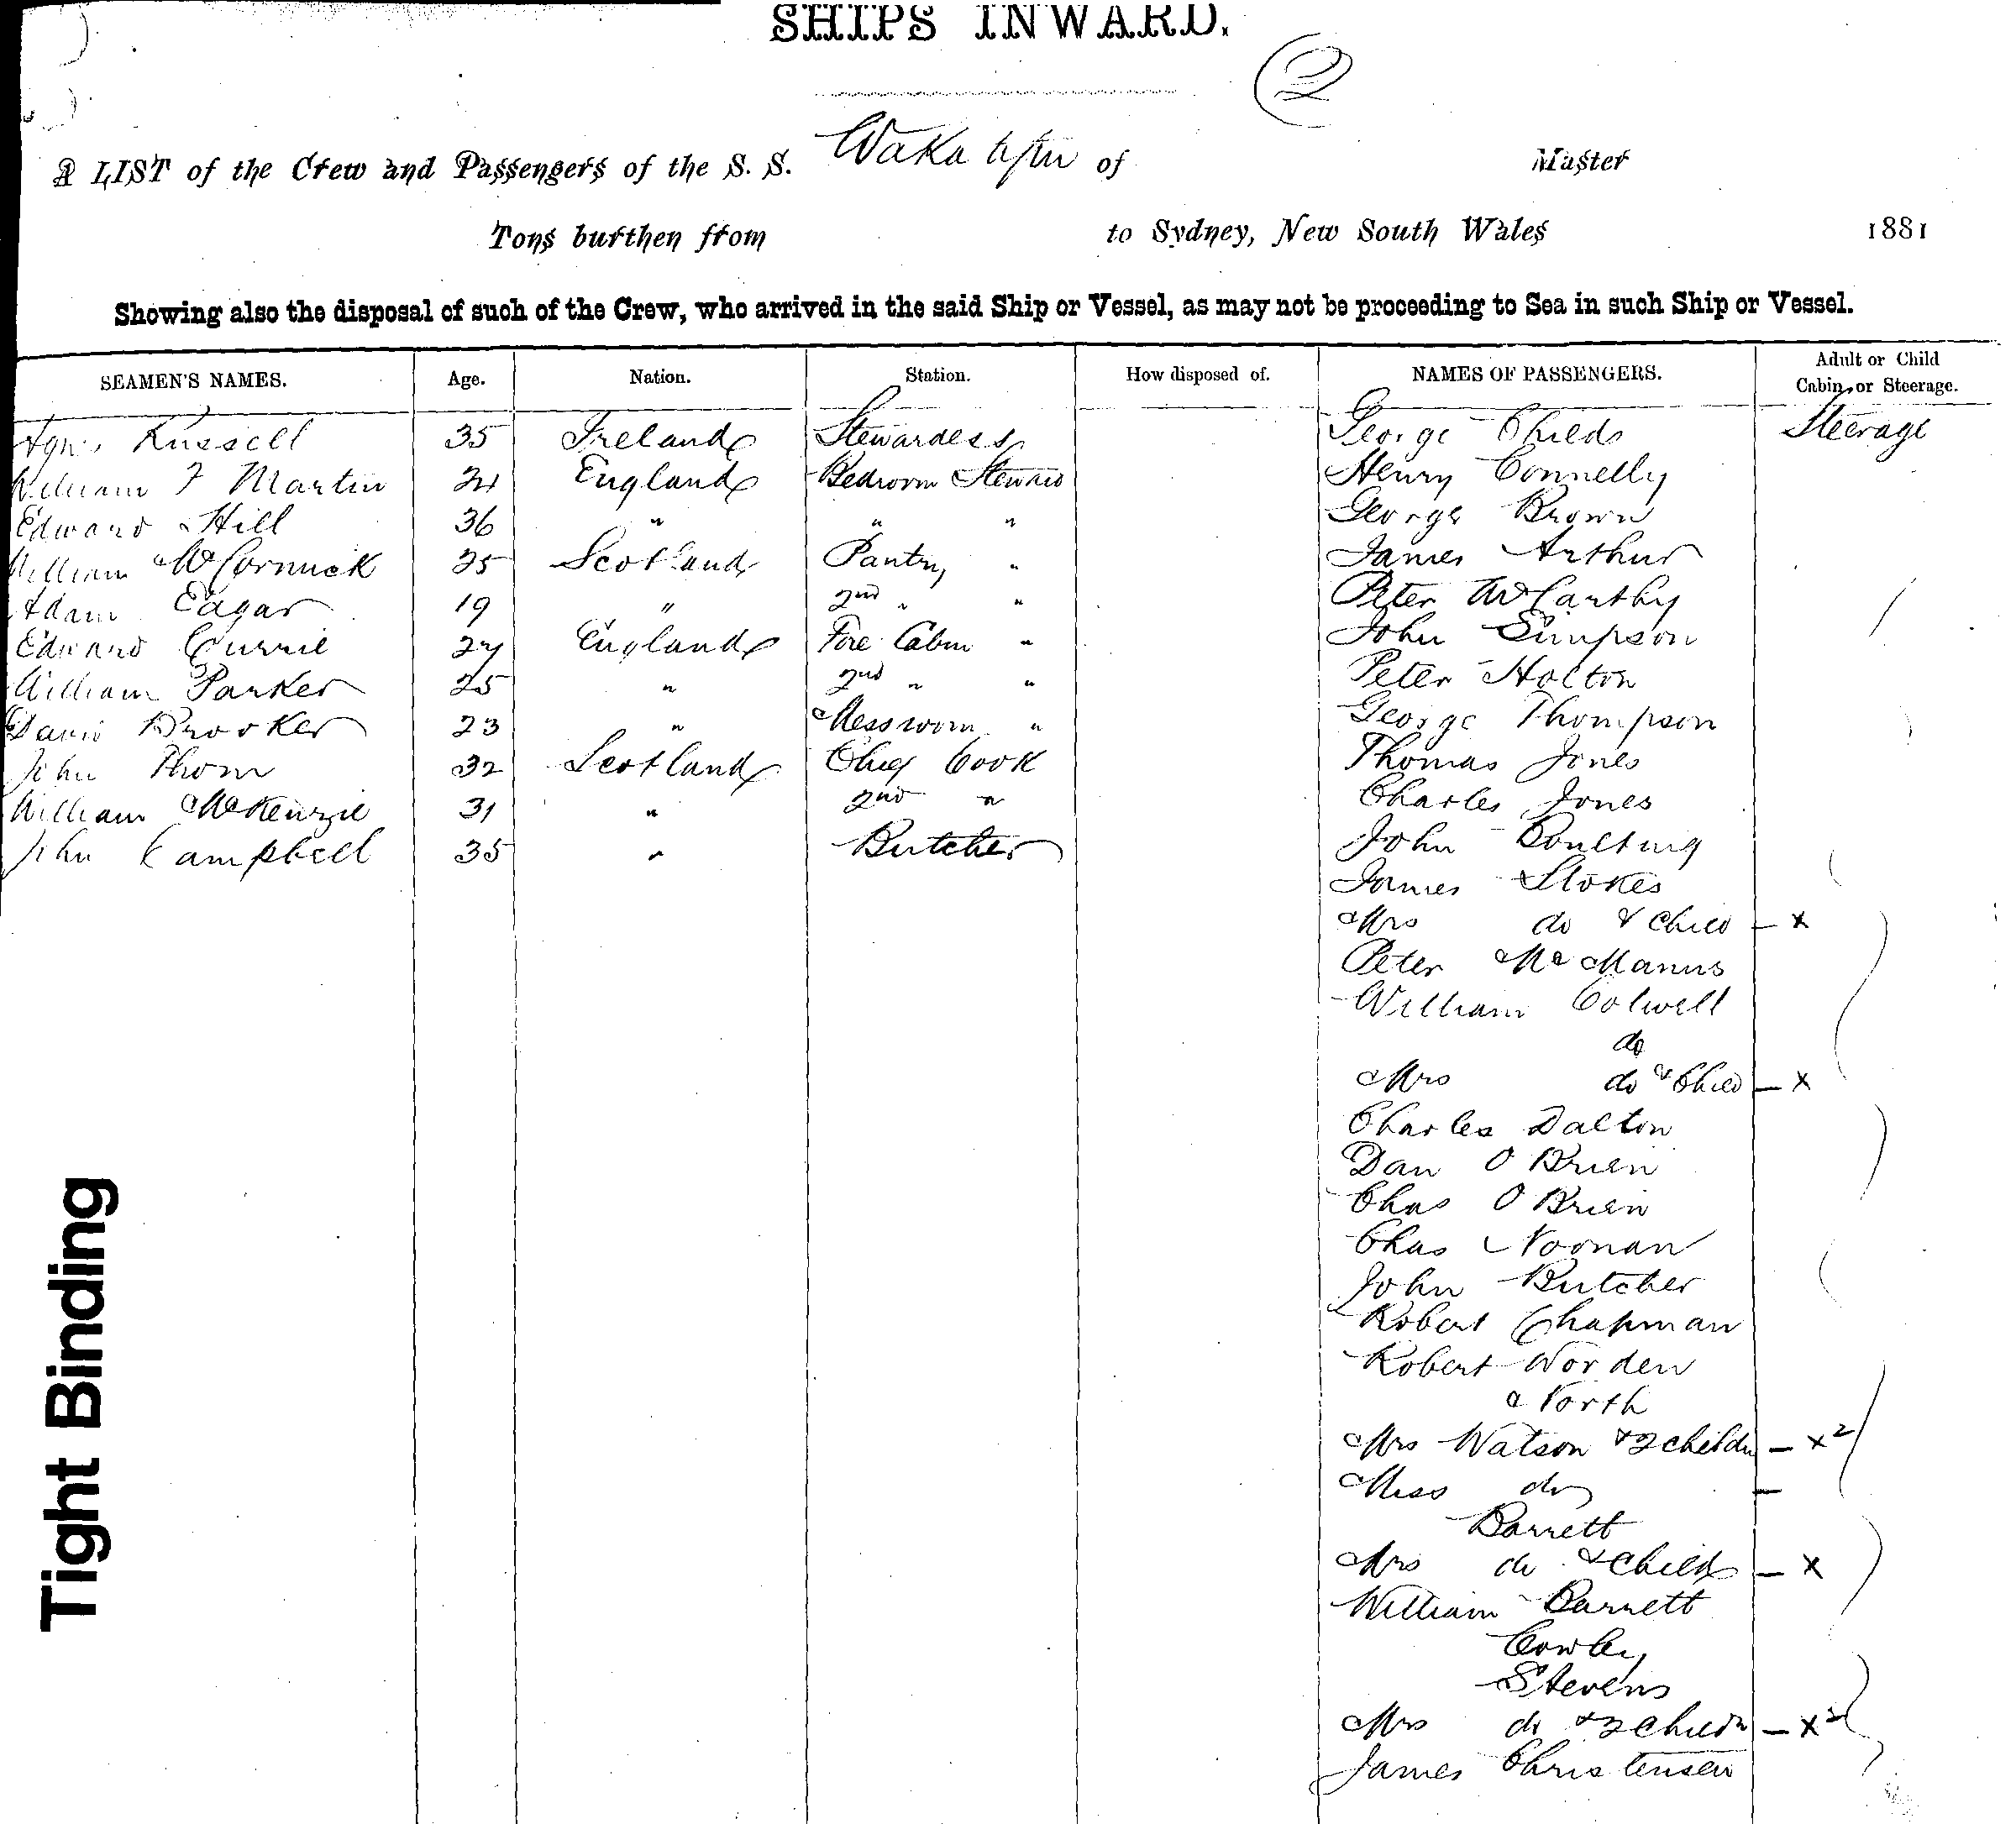 SHIPS INWARD.
2
A LIST of the Crew and Passengers of the S. S. Wakatipu of Master
Tons burthen from to Sydney, New South Wales 1881
Showing also the disposal of such of the Crew, who arrived in the said Ship or Vessel, as may not be proceeding to Sea in such Ship or Vessel.
SEAMEN'S NAMES. Age. Nation. Station. How disposed of. NAMES OF PASSENGERS. Adult or Child Cabin, or Steerage.
Agnes Russell 35 Ireland Stewardess George Childs Steerage
William F Martin England Bedroom Steward Henry Connelly
Edward Hill 36 " " " George Brown
William McCormick 25 Scotland Pantry " James Arthur
Adam Edgar 19 " 2nd " " Peter McCarthy
Edward Currie 27 England Fore Cabin " John Simpson
William Parker 25 " 2nd " " Peter Holton
David Brooker 23 " Messroom " George Thompson
John Thom 32 Scotland Chief Cook Thomas Jones
William McKenzie 31 " 2nd " Charles Jones
John Campbell 35 " Butcher John Boulting
James Stokes
Mrs do & Child - x
Peter McManus
William Colwell
do
Mrs do & Child - x
Charles Dalton
Dan O Brien
Chas O Brien
Chas Noonan
John Butcher
Robert Chapman
Robert Worden
North
Mrs Watson & 2 childn - x2
Miss do -
Barrett
Mrs do & Child - x
William Barrett
Cowley
Stevens
Mrs do & 2 Childn - x2
James Christensen
Tight Binding